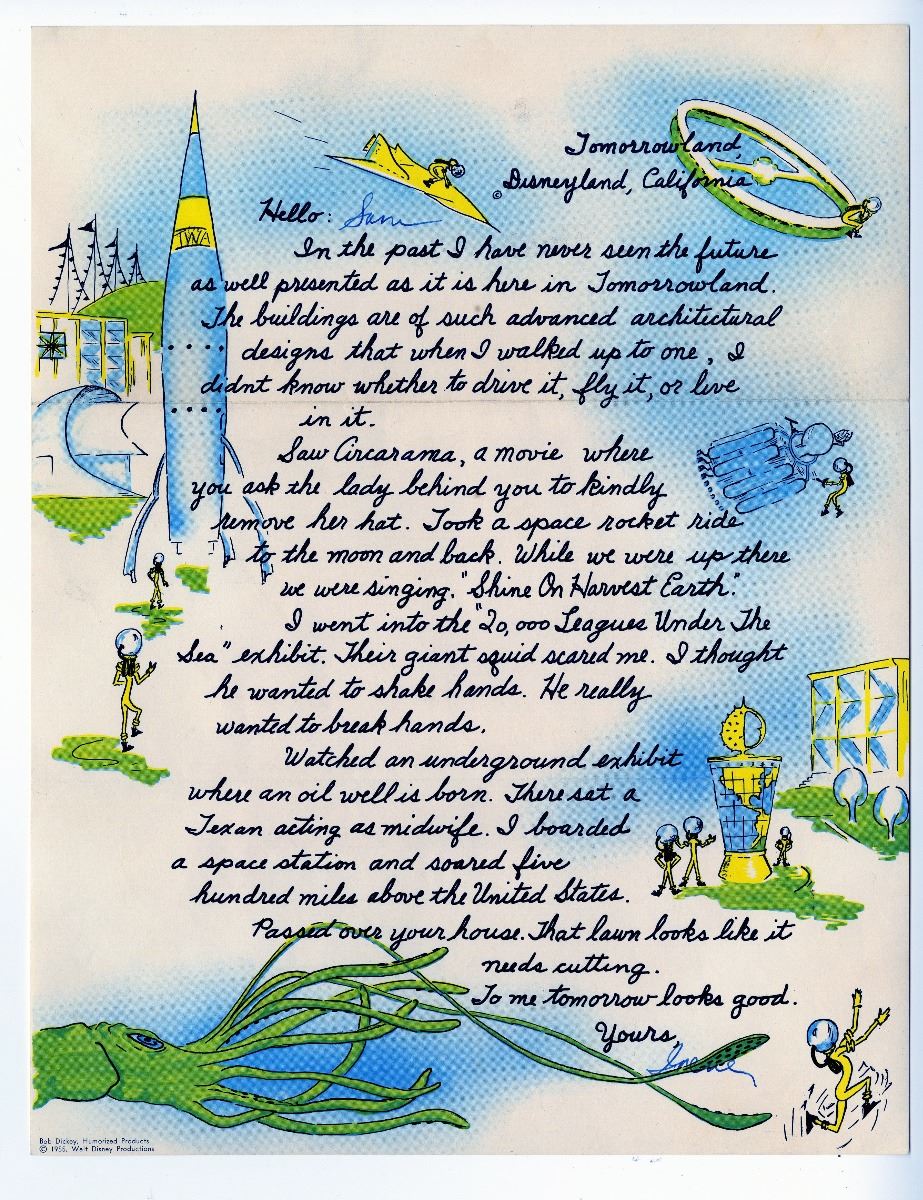 Tomorrowland,
© Disneyland, California
Hello: Sam
TWA
In the past I have never seen the future
as well presented as it is here in Tomorrowland.
The buildings are of such advanced architectural
designs that when I walked up to one, I
didnt know whether to drive it, fly it, or live
in it.
Saw Circarama, a movie where
you ask the lady behind you to kindly
remove her hat. Took a space rocket ride
to the moon and back. While we were up there
we were singing. "Shine On Harvest Earth".
I went into the "20,000 Leagues Under The
Sea" exhibit. Their giant squid scared me. I thought
he wanted to shake hands. He really
wanted to break hands.
Watched an underground exhibit
where an oil well is born. There sat a
Texan acting as midwife. I boarded
a space station and soared five
hundred miles above the United States.
Passed over your house. That lawn looks like it
needs cutting.
To me tomorrow looks good.
Yours,
Bob Dickey, Humorized Products
© 1955, Walt Disney Productions